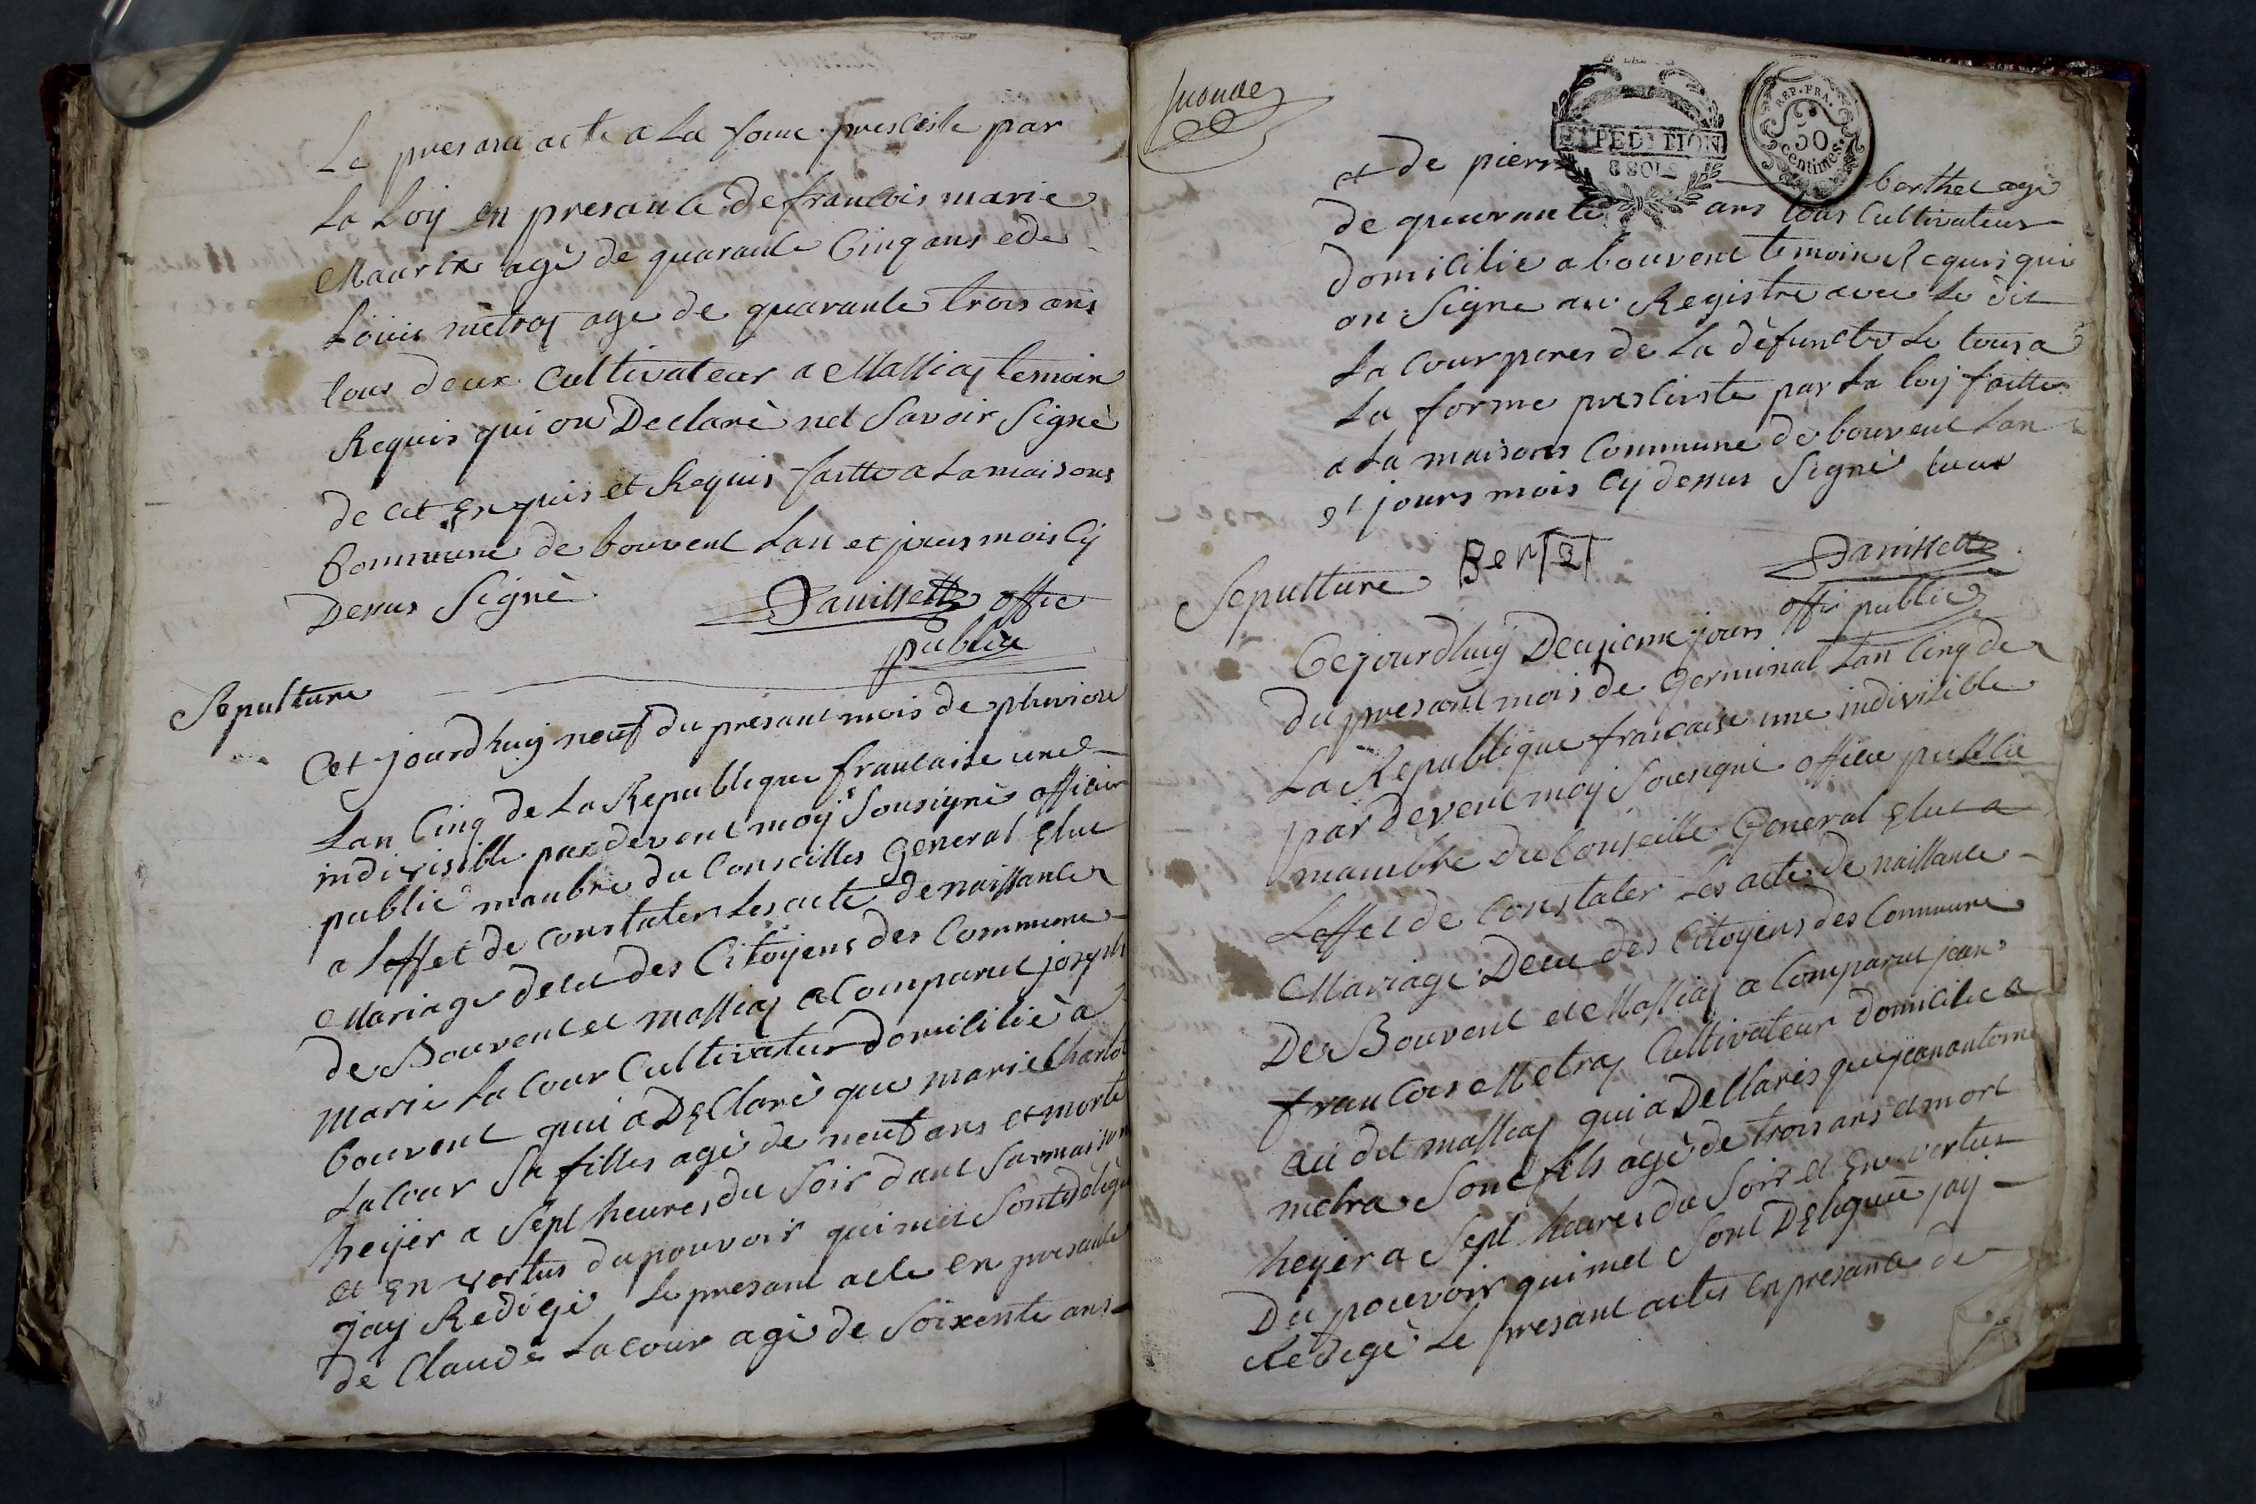 Le presant acte a La forme prescriste par
La Loy en presance de francois marie
Maurix agé de quarante Cinq ans ede
Louis metraz age de quarante trois ans
tous deux Cultivateur a Massiaz temoin
Requis qui on Declaré net Savoir Signé
de cet enquis et Requis faitte a Lamaisons
Commune de bouvent Lan et jours mois Cy
Dessus Signé
Danissette offic
public
Sepulture
Cet jourdhuy neuf du presant mois de pluviose
Lan Cinq de La Republique francaise une
indivisible pardevent moy Sousignés officier
public manbre du Conseilles General Elue
a Leffet de constater Les acte de naissance
Mariage decet des Citoyens des Commune
de Bouvent et massiaz a Comparut joseph
marie La Cour Cultivateur Domicilié a
bouvent qui a DEClaré que marie Charlot
Lacour Sa filles agé de neuf ans et morte
heijer a Sept heures du Soir dant Sa maison
et En vertus du pouvoir qui met Sont délégu
Jay Redigé Le presant acte en presance
de Claude Lacour agé de Soixente ans
et de pierr berthet agé
de quarante ans tous Cultivateur
domicilie a bouvent temoin Requis qui
on Signe au Registre avec Le dit
La Cour peres de La défuncte Le tous a
La forme presciste par La loy faitte
a La maisons Commune de bouvent Lan
et jours mois Cy dessus Signé
Bertet
Danissette
offi public
Sepulture
Cejourdhuy Deuxieme jours
du presant mois de Germinal Lan Cinq de
La Republique francaise une indivisible
par devent moy Sousigné officie public
manbre du Conseille General Elue a
Leffet de Constater Les acte de naissance
Mariage Decee des Citoyens des Commune
De Bouvent et Massiaz a Comparut jean
francois Metraz Cultivateur domicilie a
au dit massiaz qui a Déclarés que jean antoine
metra Sont fils agé de trois ans et mort
heyer a Sept heures du Soir et En vertus
Du pouvoir qui met Sont Délégué jay
Redigé Le presant actes en presance de
EXPEDITION
8 SOLS
REP. FRA.
50
centimes.